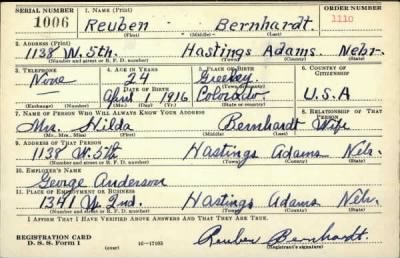 SERIAL NUMBER 1. NAME (Print) ORDER NUMBER
1006 Reuben Bernhardt. 1110
(First) (Middle) (Last)
2. ADDRESS (Print)
1138 W. 5th. Hastings Adams. Nebr.
(Number and street or R. F. D. number) (Town) (County) (State)
3. TELEPHONE 4. AGE IN YEARS 5. PLACE OF BIRTH 6. COUNTRY OF CITIZENSHIP
None 24 Greeley
DATE OF BIRTH (Town or county)
April 1 1916 Colorado U.S.A
(Exchange) (Number) (Mo.) (Day) (Yr.) (State or country)
7. NAME OF PERSON WHO WILL ALWAYS KNOW YOUR ADDRESS 8. RELATIONSHIP OF THAT PERSON
Mrs. Hilda Bernhardt Wife
(Mr., Mrs., Miss) (First) (Middle) (Last)
9. ADDRESS OF THAT PERSON
1138 W. 5th Hastings Adams Neb.
(Number and street or R. F. D. number) (Town) (County) (State)
10. EMPLOYER'S NAME
George Anderson
11. PLACE OF EMPLOYMENT OR BUSINESS
1341 W. 2nd. Hastings Adams Nebr.
(Number and street or R. F. D. number) (Town) (County) (State)
I AFFIRM THAT I HAVE VERIFIED ABOVE ANSWERS AND THAT THEY ARE TRUE.
REGISTRATION CARD Reuben Bernhardt.
D. S. S. Form 1 (over) 16—17105 (Registrant's signature)